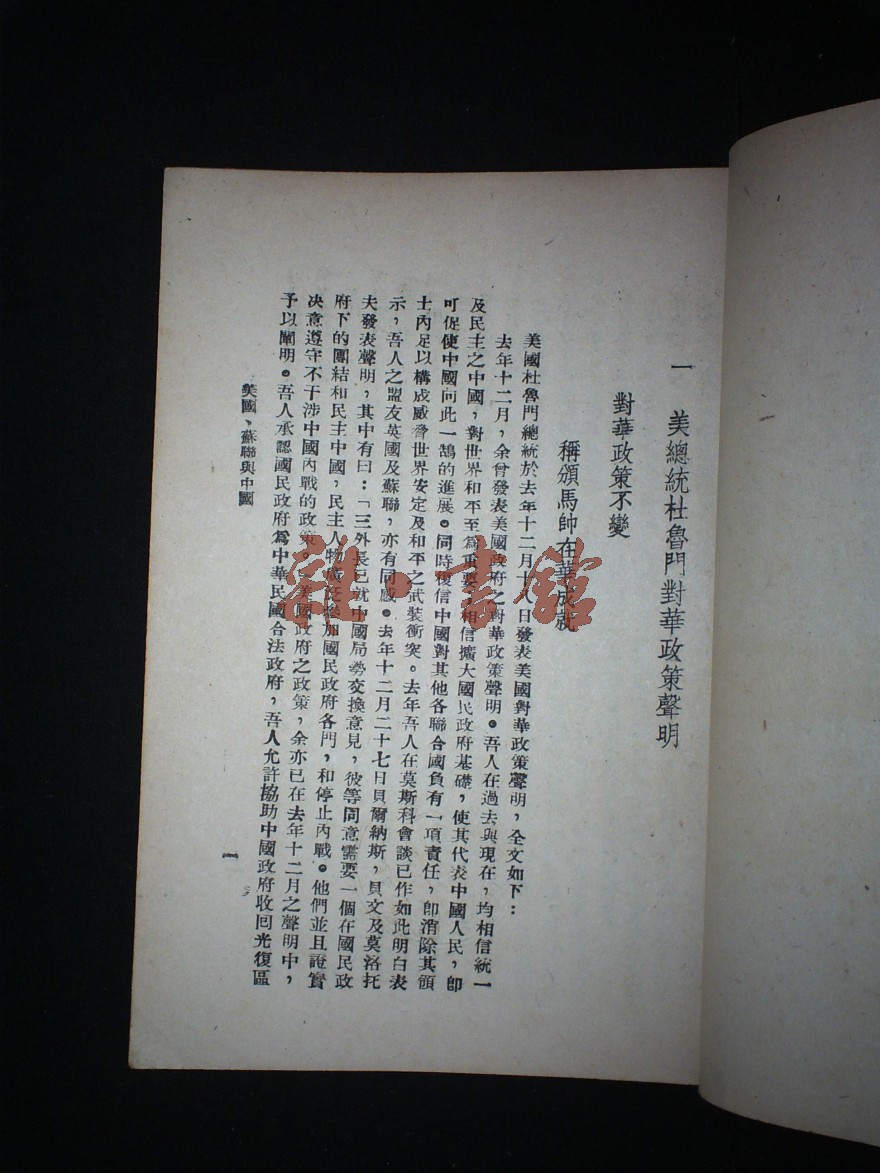 一 美總統杜魯門對華政策聲明
對華政策不變
稱頌馬帥在華成就
美國杜魯門總統於去年十二月十八日發表美國對華政策聲明，全文如下：
去年十二月，余曾發表美國政府之對華政策聲明。吾人在過去與現在，均相信統一
及民主之中國，對世界和平至為重要，相信擴大國民政府基礎，使其代表中國人民，卽
可促使中國向此一鵠的進展。同時復信中國對其他各聯合國負有一項責任，卽消除其領
士內足以構成威脅世界安定及和平之武裝衝突。去年吾人在莫斯科會談已作如此明白表
示，吾人之盟友英國及蘇聯，亦有同感。去年十二月二十七日貝爾納斯，貝文及莫洛托
夫發表聲明，其中有曰：「三外長已就中國局勢交換意見，彼等同意需要一個在國民政
府下的團結和民主中國，民主人物廣泛參加國民政府各門，和停止內戰。他們並且證實
决意遵守不干涉中國內戰的政策。」美國政府之政策，余亦已在去年十二月之聲明中，
予以闡明。吾人承認國民政府爲中華民國合法政府，吾人允許協助中國政府收回光復區
美國、蘇聯與中國
一
雜·書館